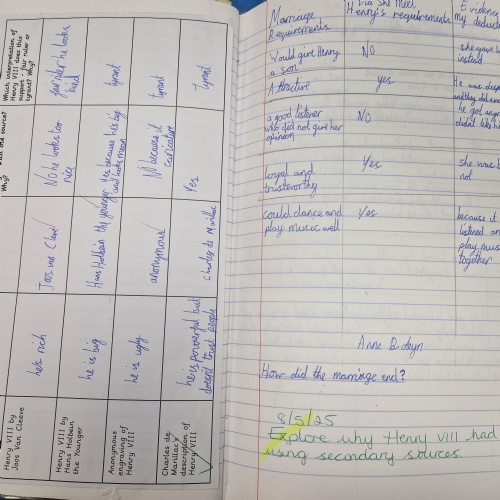 Which interpretation of
Henry VIII does this
support - fair ruler or
tyrant? Why?
the source?
Why?
Henry VIII by
Joos Van Cleeve
hes rich
Joos van Cleve
No he looks too
nice
fair ruler he looks
kind
Henry VIII by
Hans Holbein
the Younger
he is big
Hans Holbein the younger
Yes because he's big
and looks mean
tyrant
Anonymous
engraving of
Henry VIII
he is ugly
anonymous
No because it
caricature
tyrant
Charles de
Marillac's
description of
Henry VIII
he is powerful but
doesnt trust people
Charles de Marillac
Yes
tyrant
Marriage
Requirements
she meet
Henry's requirements
Evidence
my deduct
Would give Henry
a son
No
she gave
instead
Attractive
yes
He was
and they did
he got ang
didn't like
a good listener
who did not give her
opinion
No
loyal and
trustworthy
Yes
she was
not
could dance and
play music well
Yes
because
listened an
play mus
together
Anne Boleyn
How did the marriage end?
8/5/25
Explore why Henry VIII had
using secondary sources.